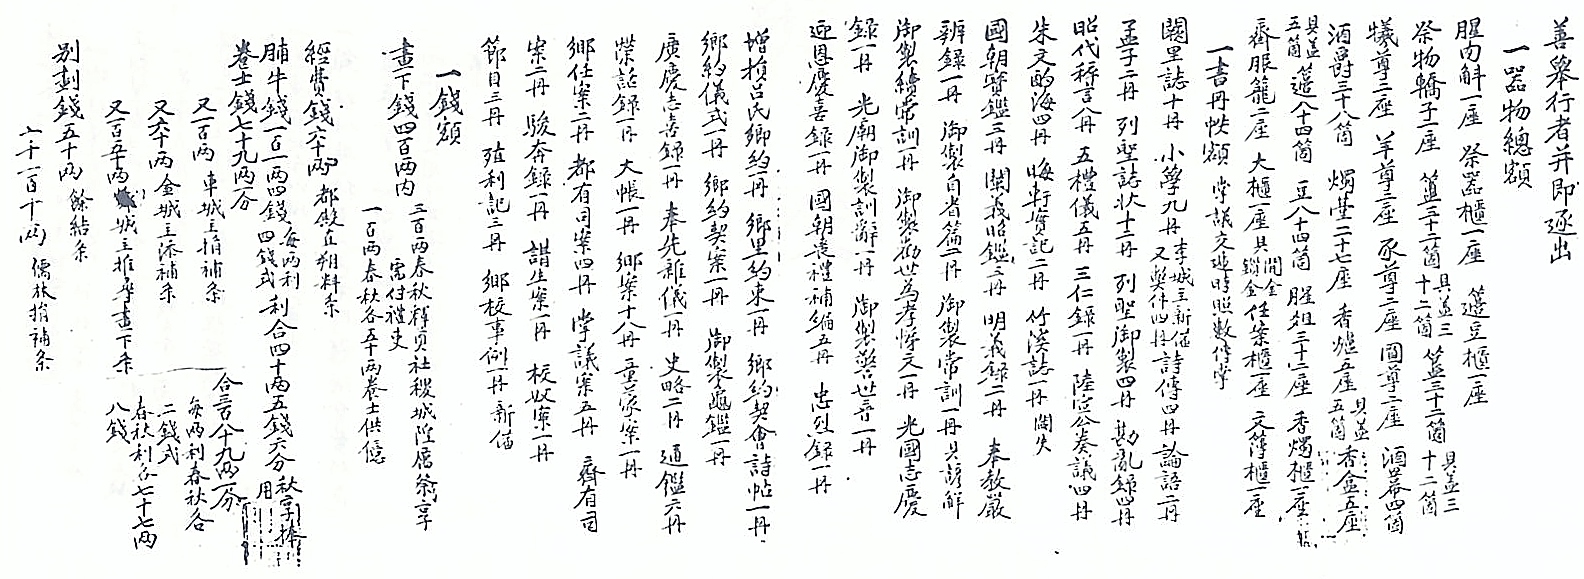 善擧行者并卽逐出
一器物總額
腥肉斛一座 祭器櫃一座 籩豆櫃一座
祭物轎子一座 簠三十二箇 具盖三十二箇 簋三十二箇 具盖三十二箇
犧尊三座 羊尊三座 豕尊三座 圓尊二座 酒幕四箇
酒爵三十八箇 燭臺二十七座 香爐五座 具盖五箇 香盒五座
具盖五箇 籩八十四箇 豆八十四箇 腥俎三十三座 香燭櫃一座
齊服籠一座 大櫃一座 具開金鎖金 任案櫃一座 文簿櫃一座
一書冊帙額 掌議交遞時照數傳掌
闕里誌十冊 小學九冊 李城主新備 又契件四冊 詩傳四冊 論語二冊
孟子二冊 列聖誌狀十二冊 列聖御製四冊 勘亂錄四冊
昭代稡言八冊 五禮儀五冊 三仁錄一冊 陸宣公奏議四冊
朱文酌海四冊 晦軒實記二冊 竹溪誌一冊 閪失
國朝寶鑑三冊 闡義昭鑑三冊 明義錄二冊 奉敎嚴
辨錄一冊 御製自省篇一冊 御製常訓一冊具諺解
御製續常訓一冊 御製勸世爲孝悌文一冊 光國志慶
錄一冊 光廟御製訓辭一冊 御製警世音一冊
迎恩慶喜錄一冊 國朝喪禮補編五冊 忠烈錄一冊
增損呂氏鄕約一冊 鄕里約束一冊 鄕約契會詩帖一冊
鄕約儀式一冊 鄕約契案一冊 御製龜鑑一冊
廣慶志喜錄一冊 奉先雜儀一冊 史略二冊 通鑑六冊
鄕案十八冊 童蒙案一冊
鄕任案二冊 都有司案四冊 掌議案五冊 齊有司
案二冊 駿奔錄一冊 譜生案一冊 校奴案一冊
節目三冊 殖利記三冊 鄕校事例一冊 新備
一錢額
畫下錢四百兩內 三百兩春秋釋奠社稷城隍
需付禮吏
一百兩春秋各五十兩養士供億
經費錢六十兩 都
脯牛錢一百一兩四錢 每兩利四錢式 利合四十兩五錢六分 秋享捧用
養士錢七十九兩一分
又一百兩 車城主捐補條
又六十兩 金城主添補條
又一百五十兩 城主推尋畫下條
合三百八十九兩一分
每兩利春秋各二錢式
春秋利各七十七兩八錢
別劃錢五十兩 餘結条
二千一百十兩 儒林捐補条